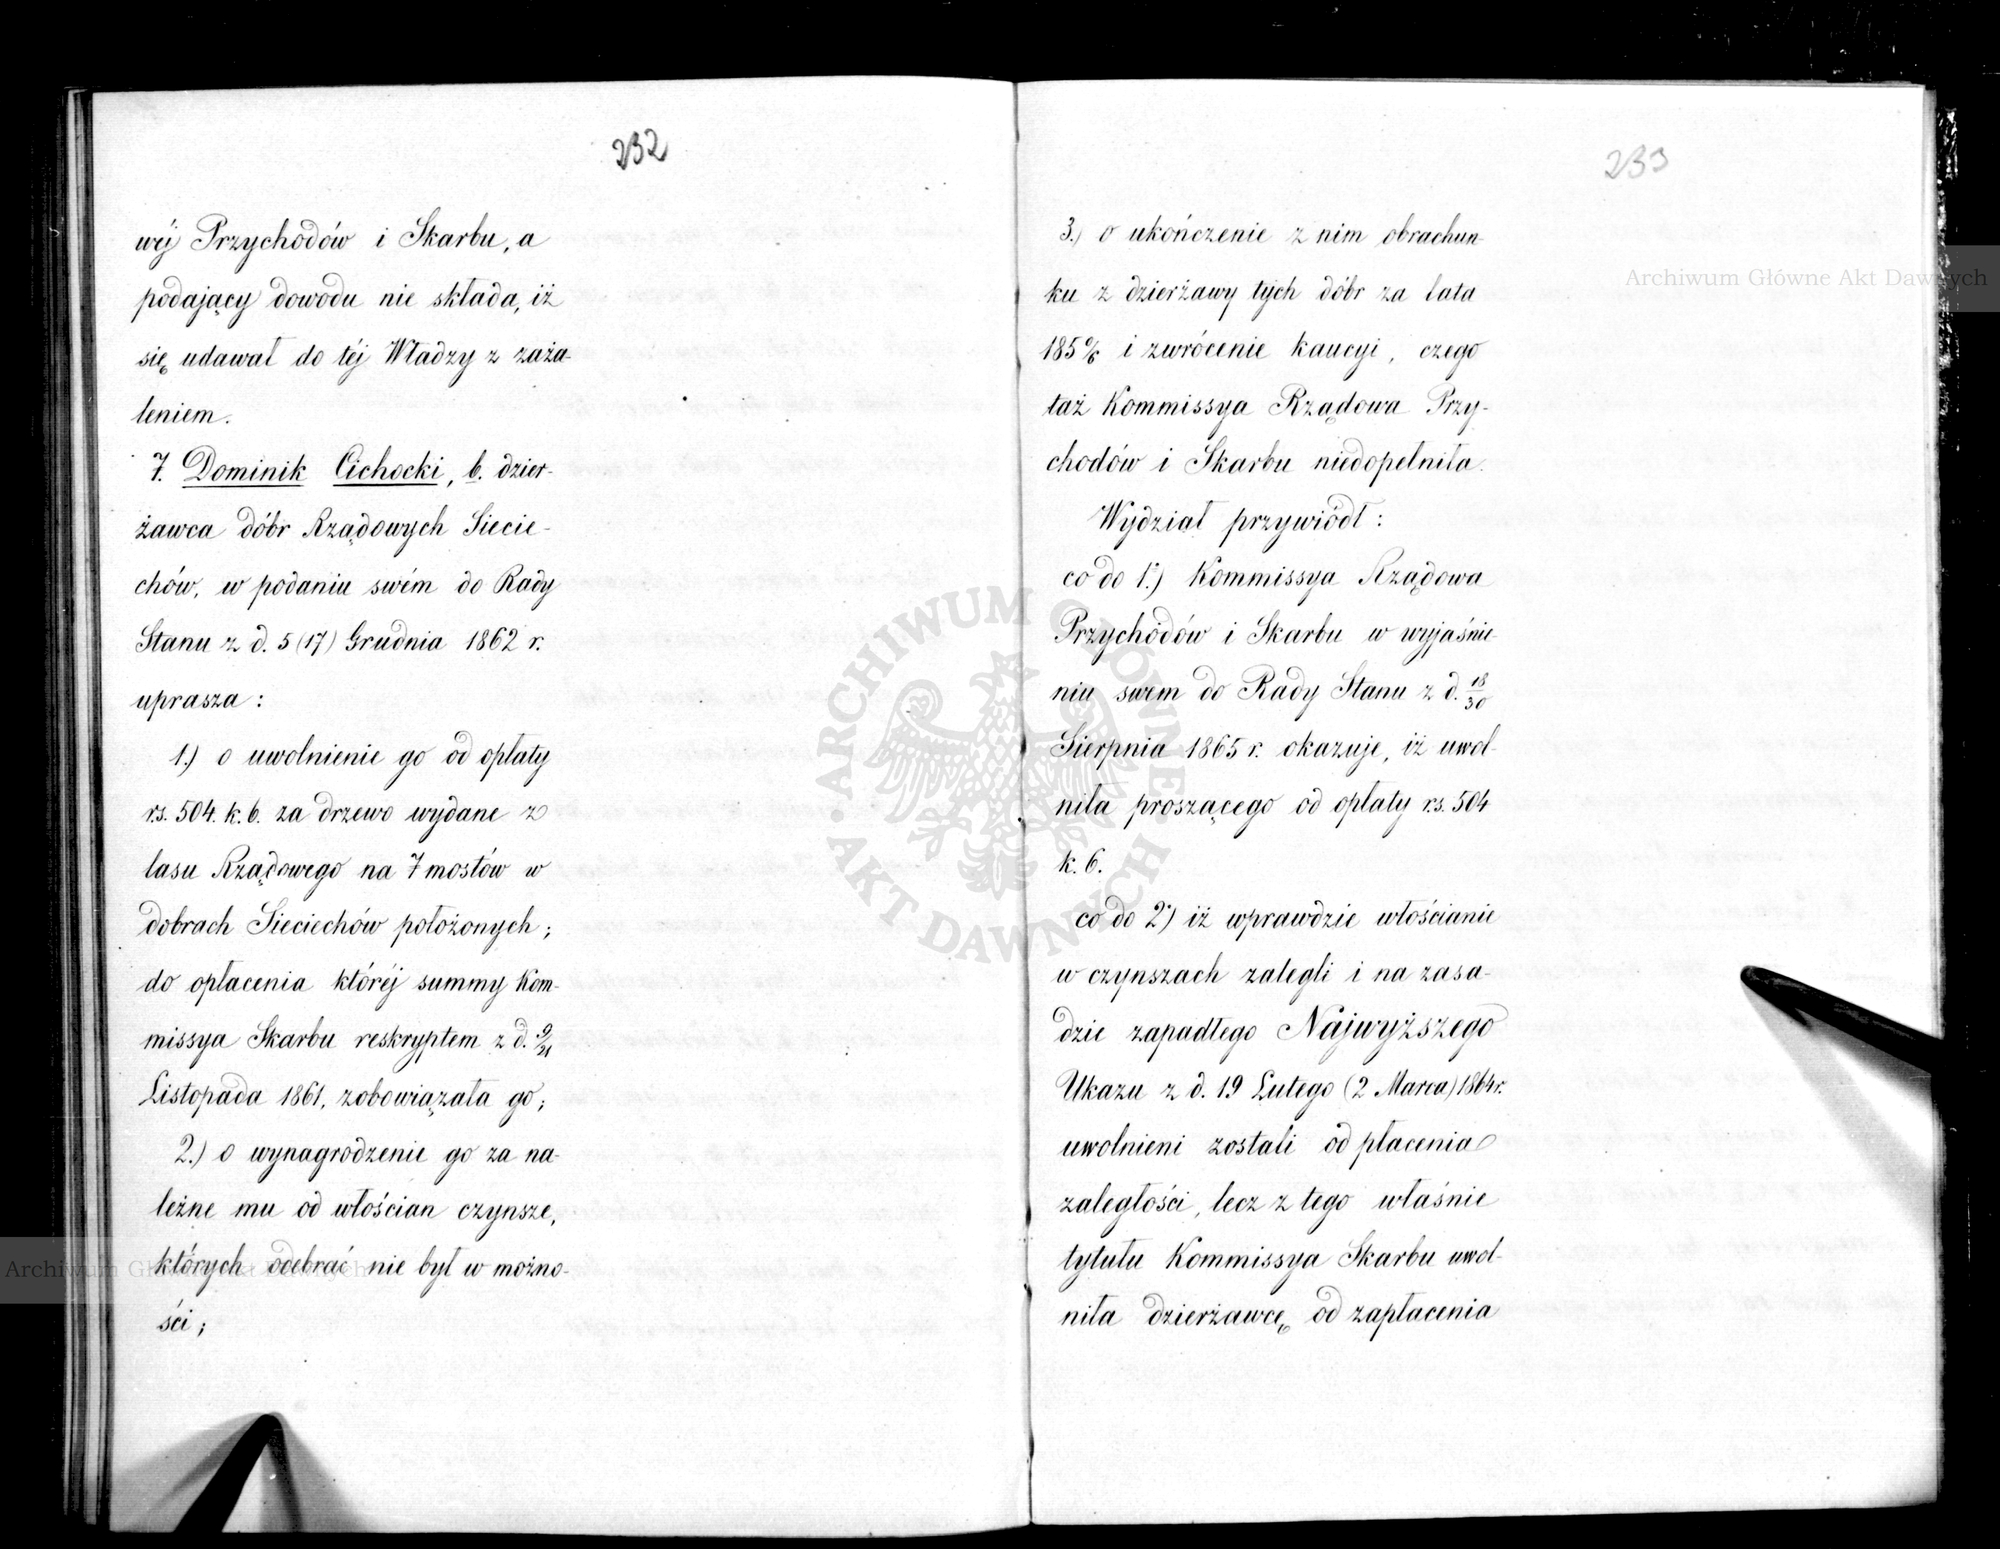 232
wéj Przychodów i Skarbu, a
podający dowodu nie składa, iż
się udawał do téj Władzy z zaża-
leniem.
7. Dominik Cichocki, b. dzier-
żawca dóbr Rządowych Siecie-
chów, w podaniu swém do Rady
Stanu z d. 5 (17) Grudnia 1862 r.
uprasza:
1.) o uwolnienie go od opłaty
rs. 504. k. 6. za drzewo wydane z
lasu Rządowego na 7 mostów w
dobrach Sieciechów położonych;
do opłacenia któréj summy Kom-
missya Skarbu reskryptem z d. 9/21
Listopada 1861. zobowiązała go;
2.) o wynagrodzenie go za na-
leżne mu od włościan czynsze,
których odebrać nie był w możno-
ści;
233
3.) o ukończenie z nim obrachun-
ku z dzierżawy tych dóbr za lata
i zwrócenie kaucyi, czego
taż Kommissya Rządowa Przy-
chodów i Skarbu niedopełniła.
Wydział przywiódł:
co do 1.) Kommissya Rządowa
Przychodów i Skarbu w wyjaśnie-
niu swem do Rady Stanu z d. 18/30
Sierpnia 1865 r. okazuje, iż uwol-
niła proszącego od opłaty rs. 504
k. 6.
co do 2) iż wprawdzie włościanie
w czynszach zalegli i na zasa-
dzie zapadłego Najwyższego
Ukazu z d. 19 Lutego (2 Marca) 1864 r.
uwolnieni zostali od płacenia
zaległości, lecz z tego właśnie
tytułu Kommissya Skarbu uwol-
niła dzierżawcę od zapłacenia
Archiwum Główne Akt Dawnych
ARCHIWUM GŁÓWNE
AKT DAWNYCH
Archiwum Główne Akt Dawnych